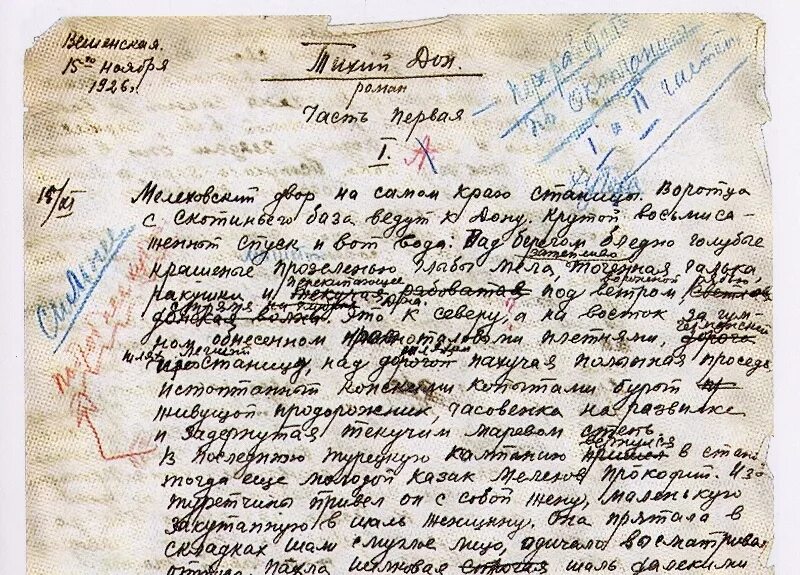 Вешенская.
15го ноября
1926г
Тихий Дон.
роман
Часть первая
I.
— перера
по окончании
I и II частей
15/XI
Мелеховский двор на самом краю станицы. Воротца
с скотиньего база ведут к Дону. Крутой восьмиса-
женный спуск и вот вода: Над берегом бледно голубые
затейливо
крашеные прозеленью глыбы мела, точенная галька,
перекипающее
ракушки и под ветром
Дона. Это к северу, а на восток за гум-
ном обнесенном красноталовыми плетнями,
сильнее
станицу, над пахучая полынная проседь,
истоптанный конскими копытами бурый
живущой продорожник, часовенка на развилке
и задернутая текучим маревом степь
вернулся
В последнюю турецкую кампанию пришел в стан
тогда еще молодой казак Мелехов Прокофий. Из
туретчины привел он с собой жену, маленькую
закутанную в шаль женщину. Она прятала в
складках шали смуглое лицо, одичало всматривая
Пахла шелковая шаль далекими